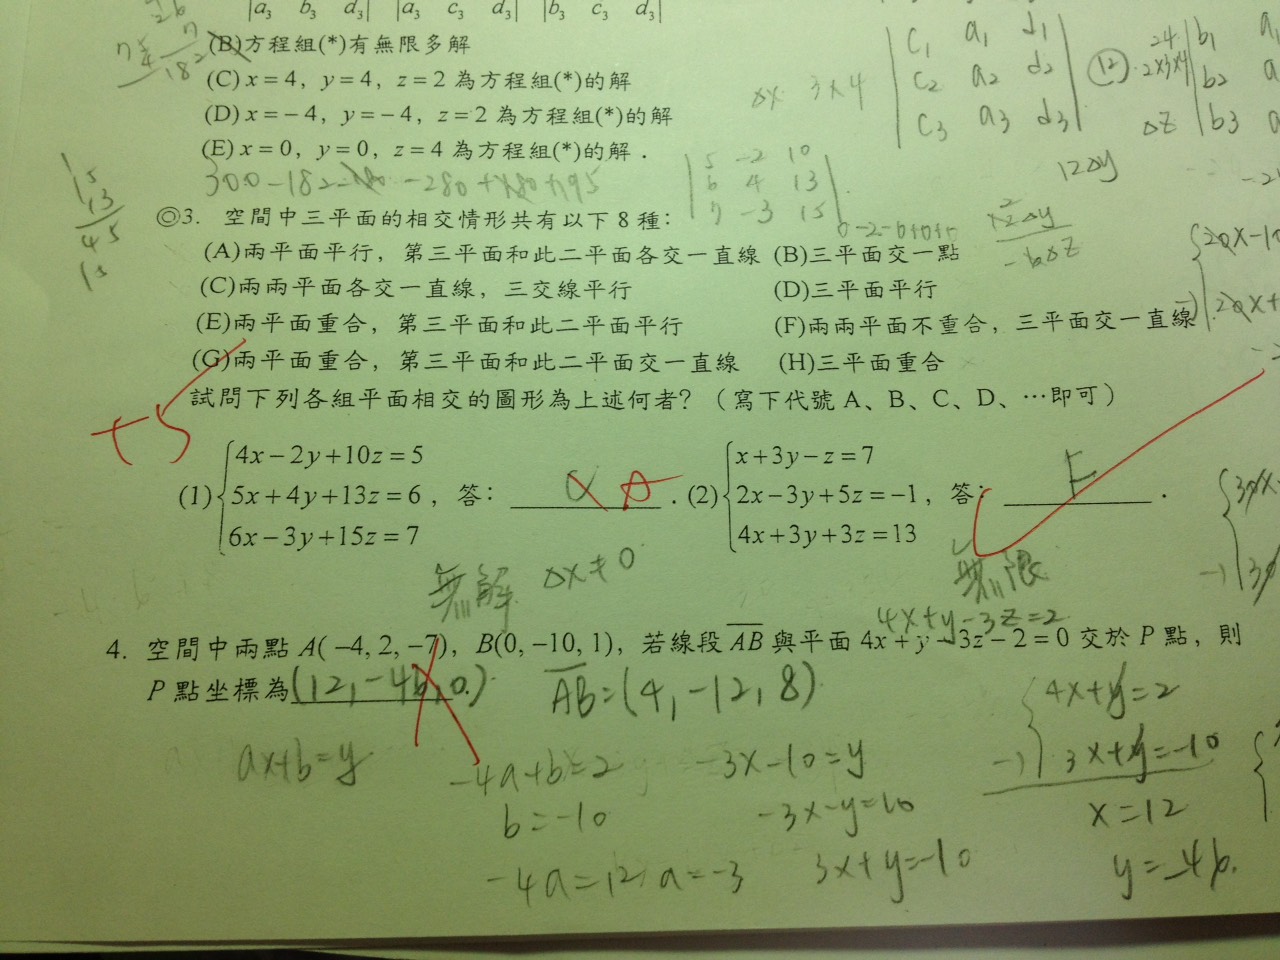 |a₃ b₃ d₃| |a₃ c₃ d₃| |b₃ c₃ d₃|
(B)方程組(*)有無限多解
(C) x = 4, y = 4, z = 2 為方程組(*)的解
(D) x = -4, y = -4, z = 2 為方程組(*)的解
(E) x = 0, y = 0, z = 4 為方程組(*)的解.
c₁ a₁ d₁
c₂ a₂ d₂
c₃ a₃ d₃
Δx 3×4
12
24
2×3×4
b₁
b₂
b₃
ΔZ
12Δy
182
5 -2 10
6 4 13
7 -3 15
◎3. 空間中三平面的相交情形共有以下 8 種:
(A)兩平面平行, 第三平面和此二平面各交一直線 (B)三平面交一點
(C)兩兩平面各交一直線, 三交線平行 (D)三平面平行
(E)兩平面重合, 第三平面和此二平面平行 (F)兩兩平面不重合, 三平面交一直線
(G)兩平面重合, 第三平面和此二平面交一直線 (H)三平面重合
試問下列各組平面相交的圖形為上述何者? (寫下代號 A、B、C、D、…即可)
+5
(1) 4x - 2y + 10z = 5
5x + 4y + 13z = 6, 答: A.
6x - 3y + 15z = 7
(2) x + 3y - z = 7
2x - 3y + 5z = -1, 答: F.
4x + 3y + 3z = 13
無解 Δx ≠ 0
無限
4x+y-3z=2
4. 空間中兩點 A(-4, 2, -7), B(0, -10, 1), 若線段 AB 與平面 4x + y - 3z - 2 = 0 交於 P 點, 則
P 點坐標為(12, -46, 0)
AB=(4, -12, 8)
4x+y=2
3x+y=-10
x=12
y=-46.
ax+b=y
-4a+b=2
b=-10
-4a=12 a=-3
-3x-10=y
-3x-y=10
3x+y=-10